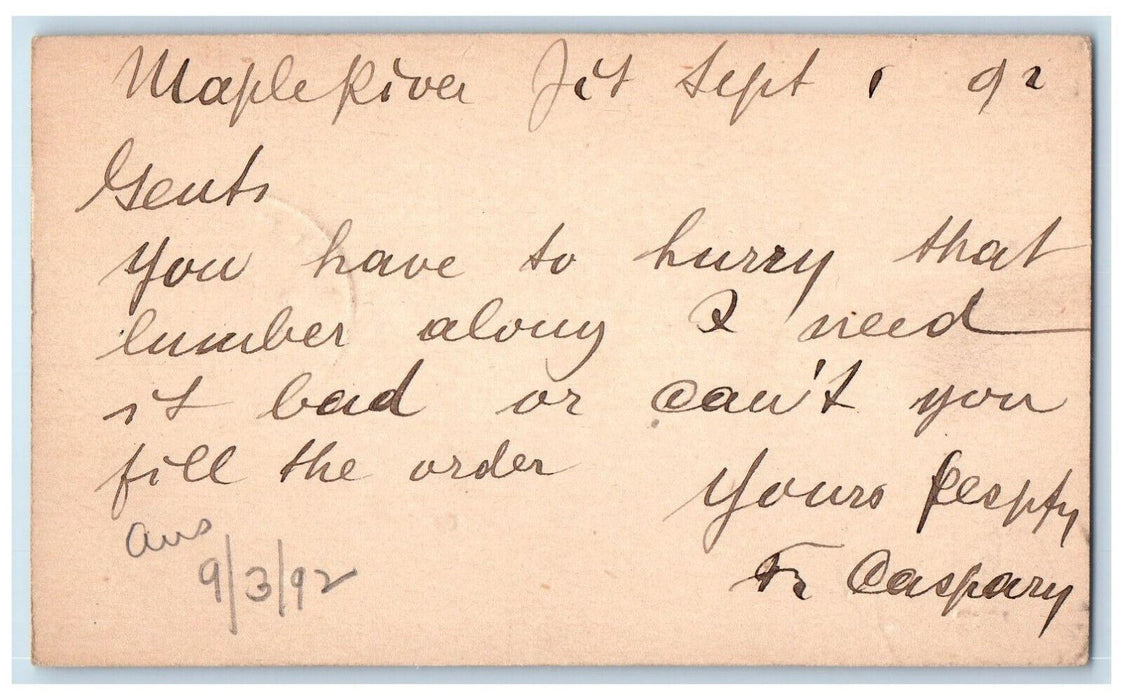 Maple River Jct Sept 1 92
Gents
You have to hurry that
lumber along I need
it bad or can't you
fill the order
Yours Respfy
Fr Caspary
Ans
9/3/92